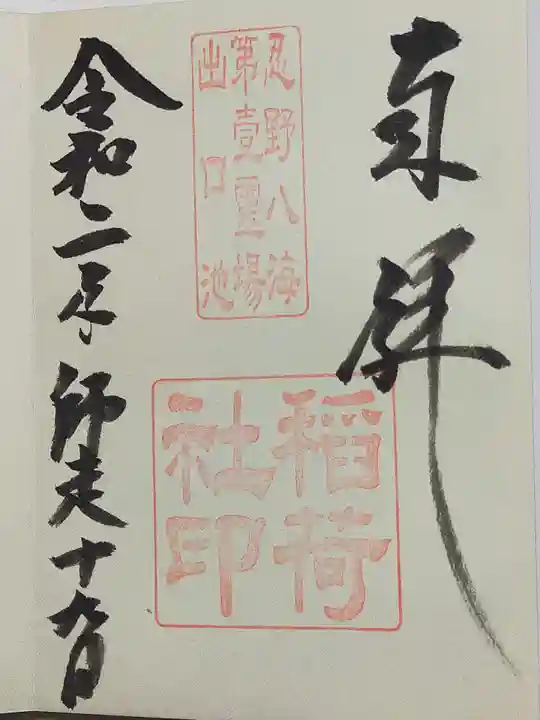 奉拝
忍野八海
第壹霊場
出口池
稲荷
社印
令和二年師走十九日